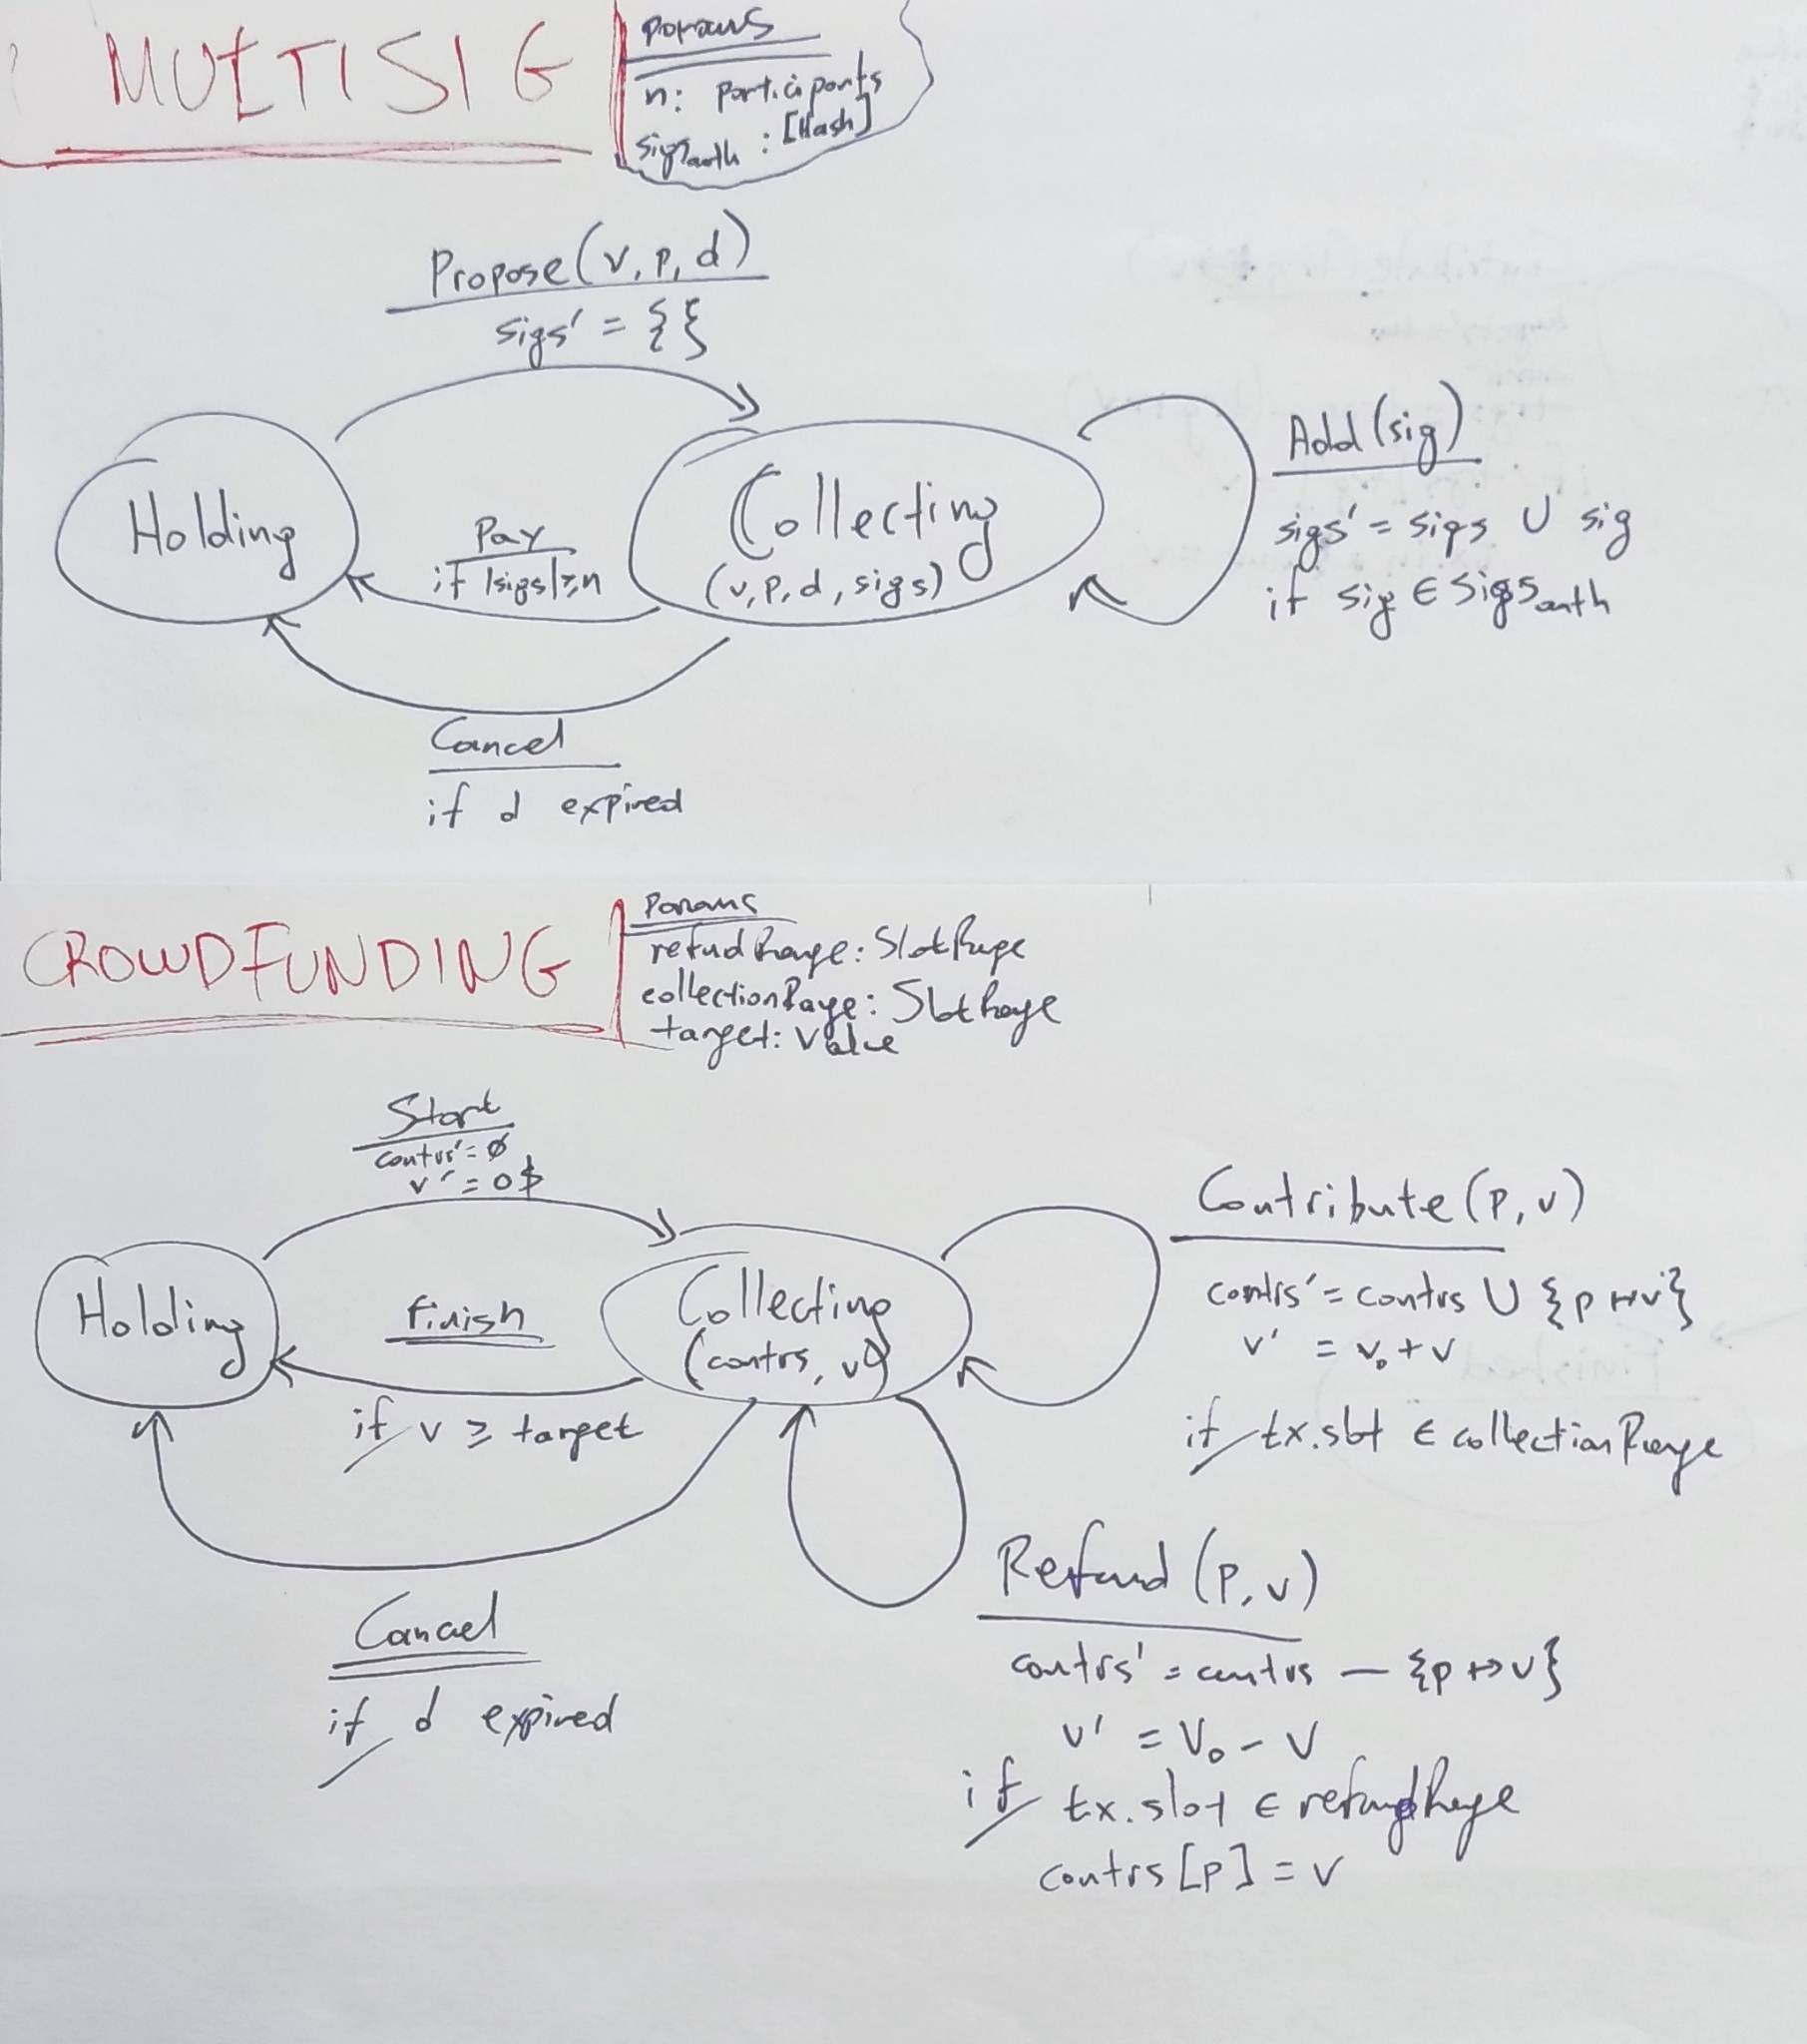 MULTISIG
params
n: participants
sigs_auth : [Hash]
Propose(v, p, d)
sigs' = {}
Holding
Pay
if |sigs| ≥ n
Collecting
(v, p, d, sigs)
Add(sig)
sigs' = sigs ∪ sig
if sig ∈ sigs_auth
Cancel
if d expired
CROWDFUNDING
Params
refundRange: SlotRange
collectionRange: SlotRange
target: Value
Start
contrs' = ∅
v' = 0$
Holding
Finish
if v ≥ target
Collecting
(contrs, v)
Contribute(p, v)
contrs' = contrs ∪ {p ↦ v}
v' = v₀ + v
if tx.slot ∈ collectionRange
Cancel
if d expired
Refund (p, v)
contrs' = contrs — {p ↦ v}
v' = v₀ - v
if tx.slot ∈ refundRange
contrs[p] = v